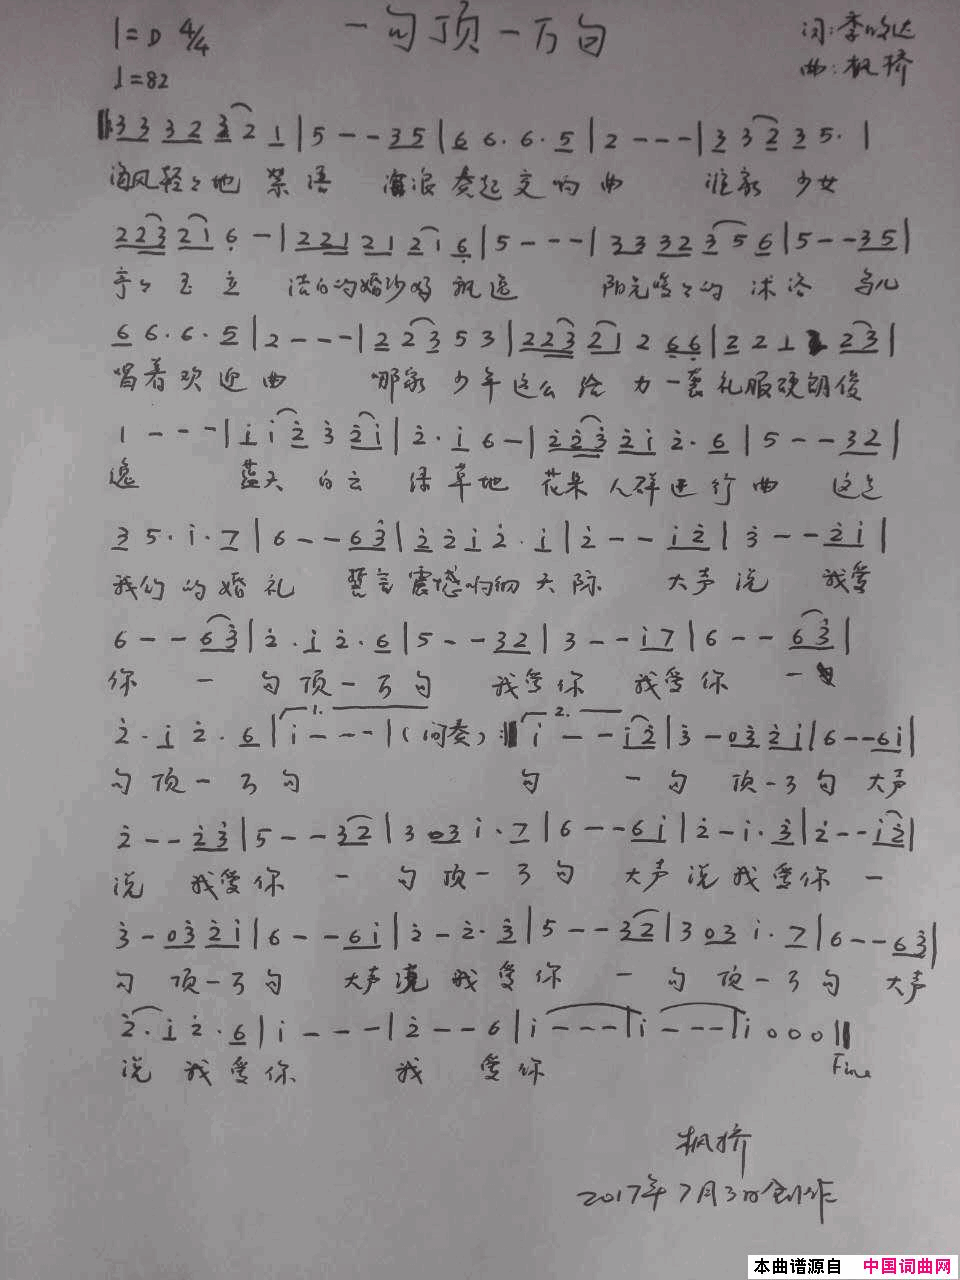 1=D 4/4 一句顶一万句 词:李
♩=82 曲:枫桥
3 3 3 2 3 2 1 | 5 - - 3 5 | 6 6. 6. 5 | 2 - - - | 3 3 2 3 5. |
海风轻轻地 语 海浪奏起交响曲 谁家 少女
2 2 3 2 1 6 - | 2 2 1 2 1 2 1 6 | 5 - - - | 3 3 3 2 3 5 6 | 5 - - 3 5 |
亭亭玉立 洁白的婚纱 飘逸 阳光暖暖的沐浴 鸟儿
6 6. 6. 5 | 2 - - - | 2 2 3 5 3 | 2 2 3 2 1 2 6 6 | 2 2 1 2 3 |
唱着欢迎曲 哪家少年这么给力 一套礼服硬朗俊
1 - - - | i i 2 3 2 i | 2. i 6 - | 2 2 3 2 i 2. 6 | 5 - - 3 2 |
逸 蓝天白云 绿草地 花朵人群进行曲 这是
3 5. i. 7 | 6 - - 6 3 | 2 2 i 2. i | 2 - - i 2 | 3 - - 2 i |
我们的婚礼 誓言震撼 天际 大声说 我爱
6 - - 6 3 | 2. i 2. 6 | 5 - - 3 2 | 3 - - i 7 | 6 - - 6 3 |
你 一句顶一万句 我爱你 我爱你 一
2. i 2. 6 | 1. i - - - | (间奏) :‖ 2. i - - i 2 | 3 - 0 3 2 i | 6 - - 6 i |
句顶一万句 句 一句 顶一万句 大声
2 - - 2 3 | 5 - - 3 2 | 3 0 3 i. 7 | 6 - - 6 i | 2 - i. 3 | 2 - - i 2 |
说 我爱你 一句顶一万句 大声说我爱你 一
3 - 0 3 2 i | 6 - - 6 i | 2 - 2. 3 | 5 - - 3 2 | 3 0 3 i. 7 | 6 - - 6 3 |
句 顶一万句 大声说 我爱你 一句顶一万句 大声
2. i 2. 6 | i - - - | 2 - - 6 | i - - - | i - - - | i 0 0 0 ‖
说 我爱你 我 爱你 Fine
枫桥
2017年7月3日创作
本曲谱源自 中国词曲网